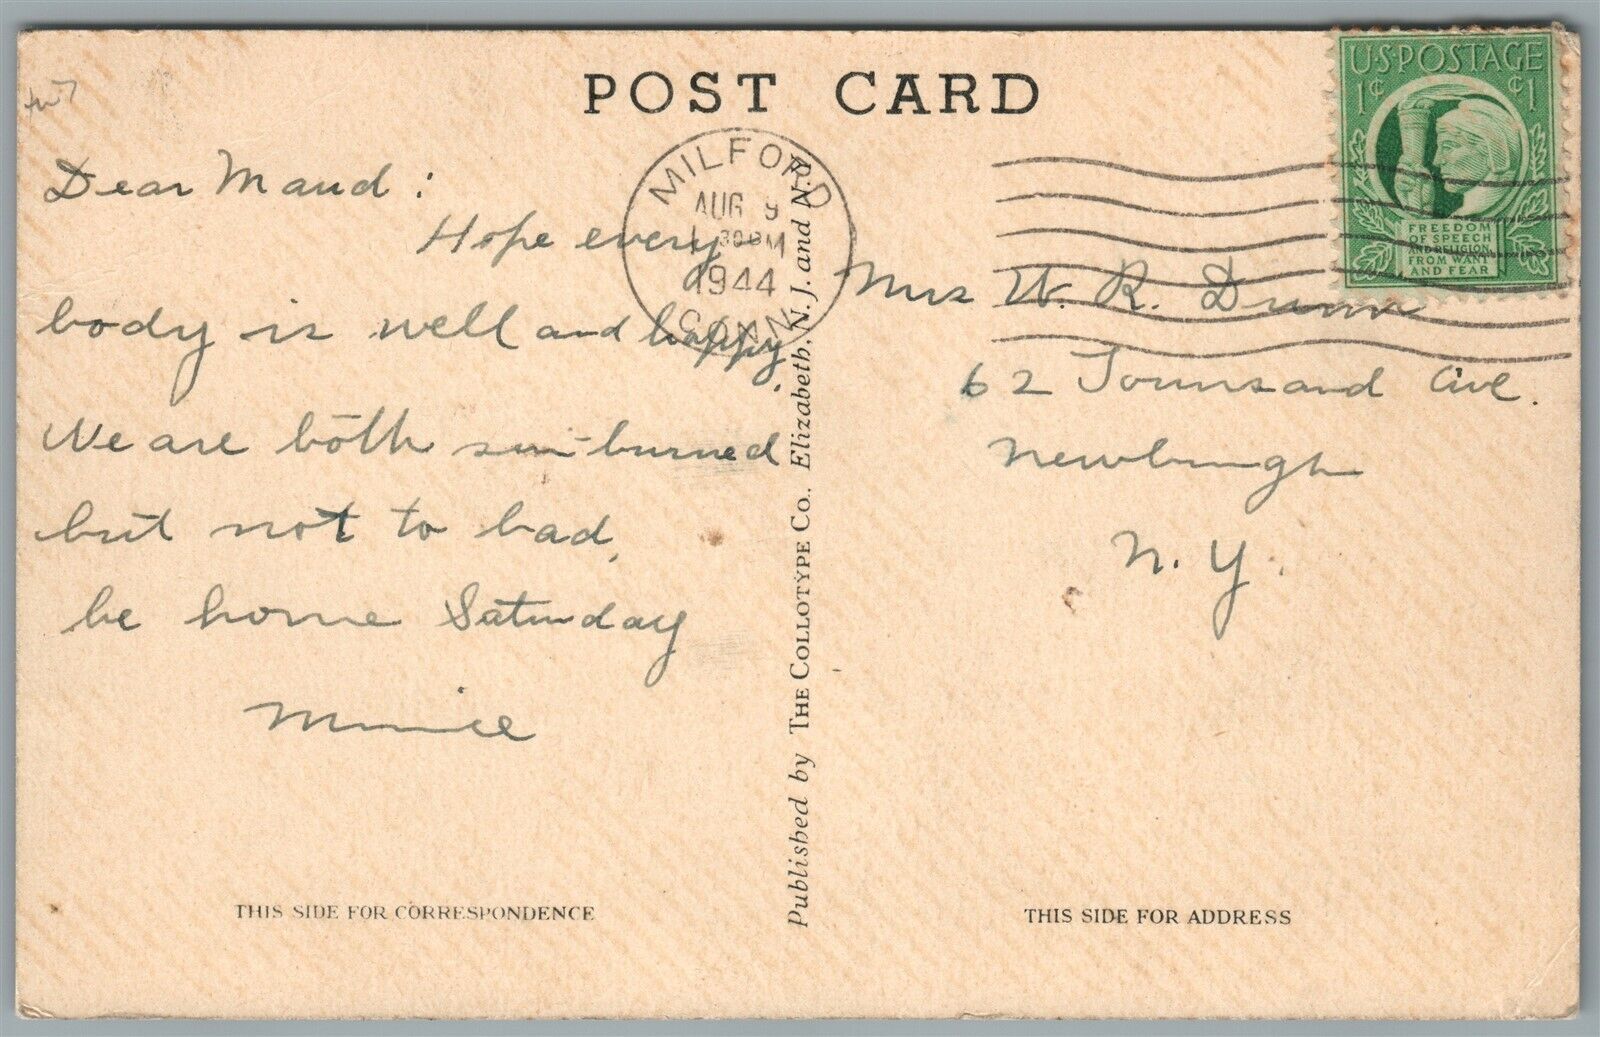 POST CARD
Dear Maud:
Hope every
body is well and happy.
We are both sun-burned
but not to bad,
be home Saturday
Minnie
THIS SIDE FOR CORRESPONDENCE
MILFORD
AUG 9
30 PM
1944
CONN
Published by THE COLLOTYPE CO., Elizabeth, N. J. and N.Y.
U.S. POSTAGE
1¢ ¢1
FREEDOM
OF SPEECH
AND RELIGION,
FROM WANT
AND FEAR
Mrs W. R. Dunn
62 Townsand Ave.
Newburgh
N. Y.
THIS SIDE FOR ADDRESS